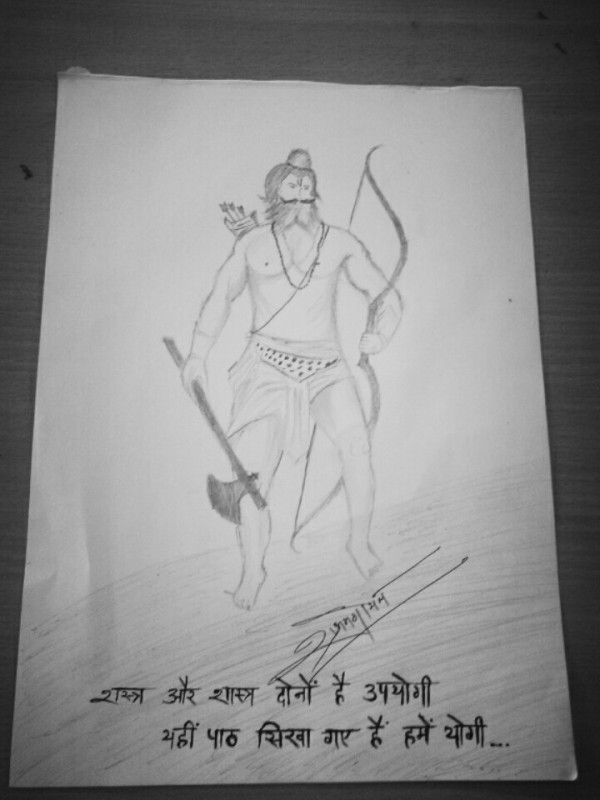 शस्त्र और शास्त्र दोनों है उपयोगी
यहीं पाठ सिखा गए हैं हमें योगी...